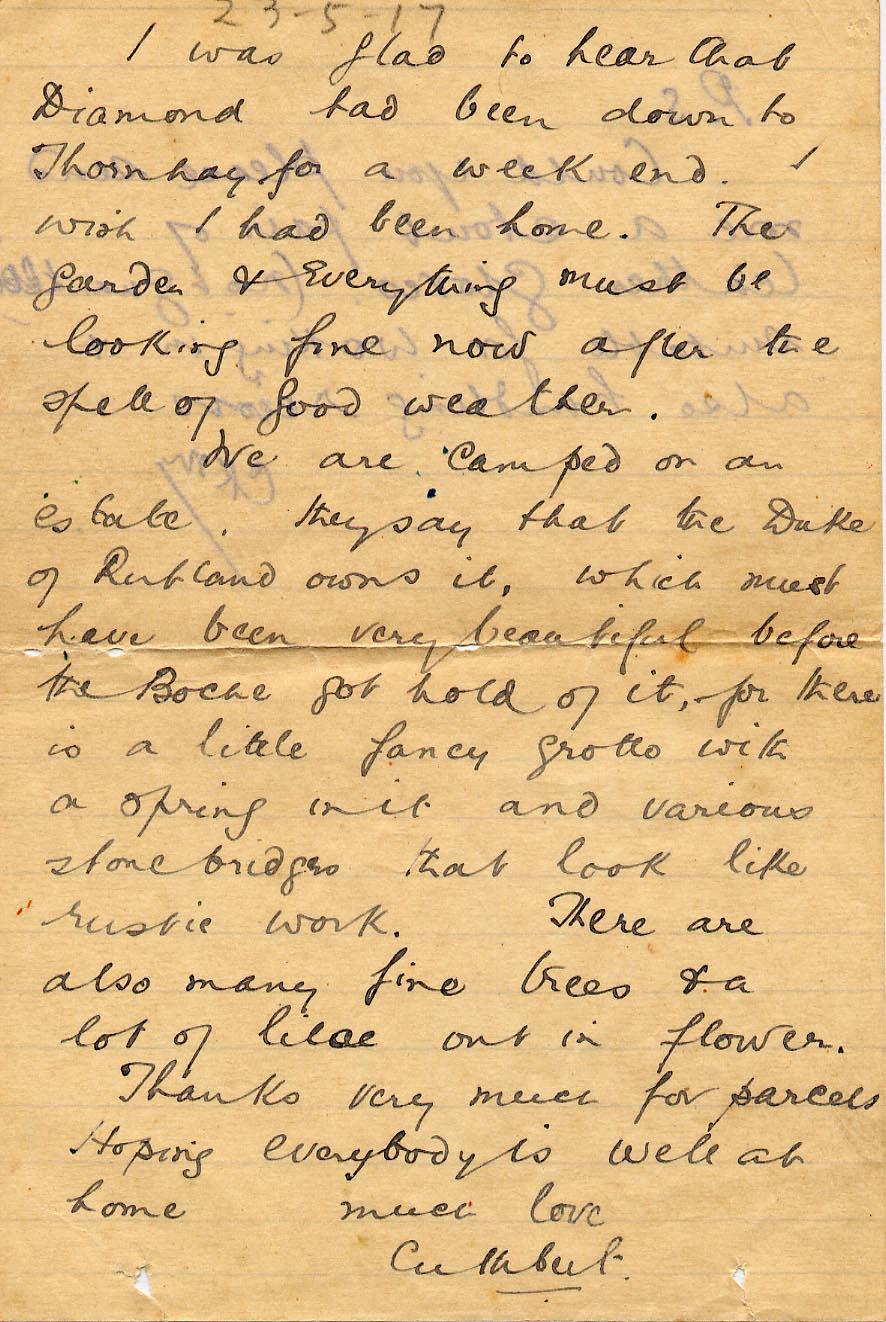 23-5-17
I was glad to hear that
Diamond had been down to
Thornhay for a week end. I
wish I had been home. The
garden & Everything must be
looking fine now after the
spell of good weather.
We are camped on an
estate, they say that the Duke
of Rutland owns it, which must
have been very beautiful before
the Boche got hold of it, for there
is a little fancy grotto with
a spring in it and various
stone bridges that look like
rustic work. There are
also many fine trees & a
lot of lilac out in flower.
Thanks very much for parcels
Hoping everybody is well at
home much love
Cuthbert.